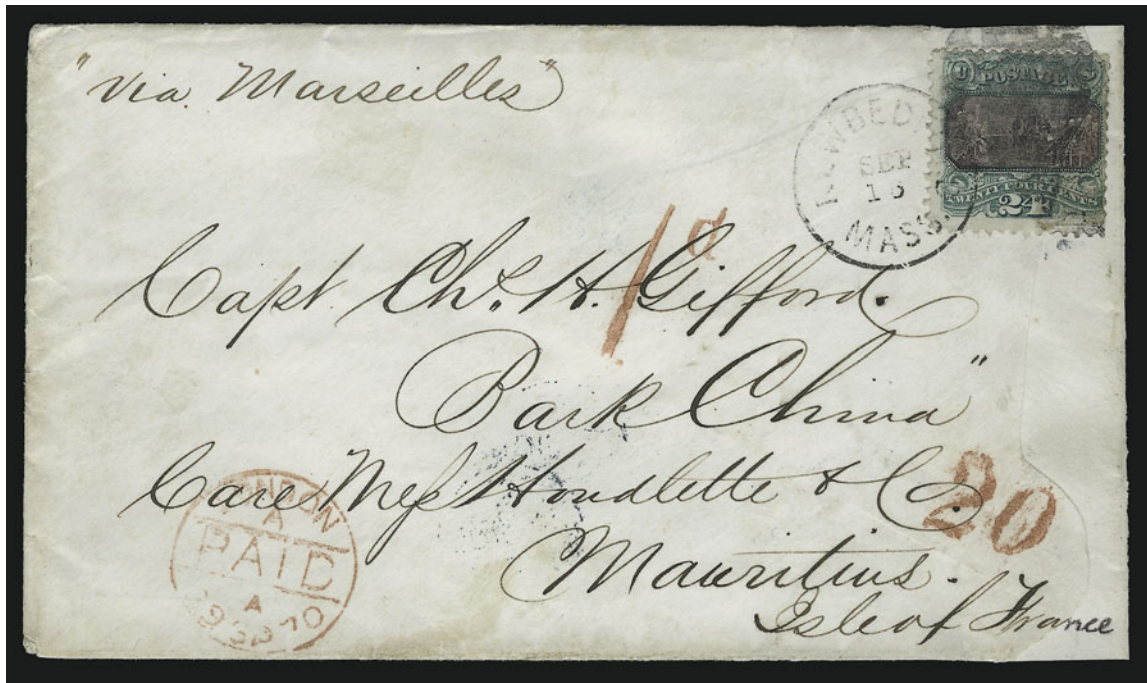 "Via Marseilles"
U POSTAGE S
TWENTY FOUR CENTS
24
SEP
16
MASS.
1d
Capt. Chs. H. Gifford.
Bark China"
Care Mess Houdlette & Co
Mauritius.
Isle of France
20
LONDON
A
PAID
A